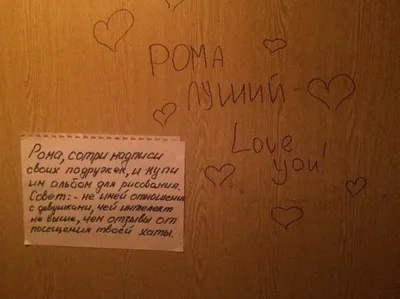 РОМА
ЛУШИЙ-
Love
you!
Рома, сотри надписи
своих подружек, и купи
им альбом для рисования.
Совет: - не имей отношения
с девушками, чей интелект
не выше, чем отзывы от
посещения твоей хаты.